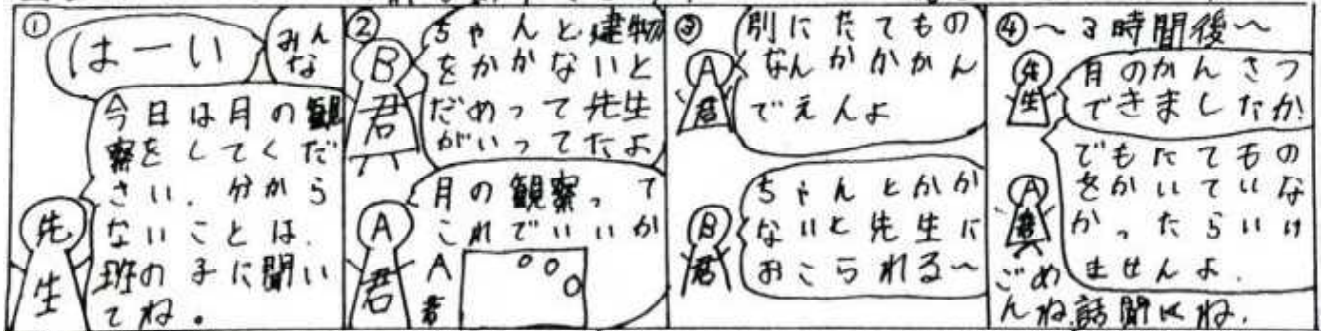 ①
はーい
みん
な
今日は月の観
察をしてくだ
さい。分から
ないことは、
班の子に聞い
てね。
先生
②
ちゃんと建物
をかかないと
だめって先生
がいってたよ
B君
月の観察って
これでいいか
A君
A君
③
別にたてもの
なんかかかん
でえんよ
A君
ちゃんとかか
ないと先生に
おこられる〜
B君
④〜3時間後〜
月のかんさつ
できましたか
先生
でもたてもの
をかいていな
かったらいけ
ませんよ。
A君
ごめ
んね話聞くね.